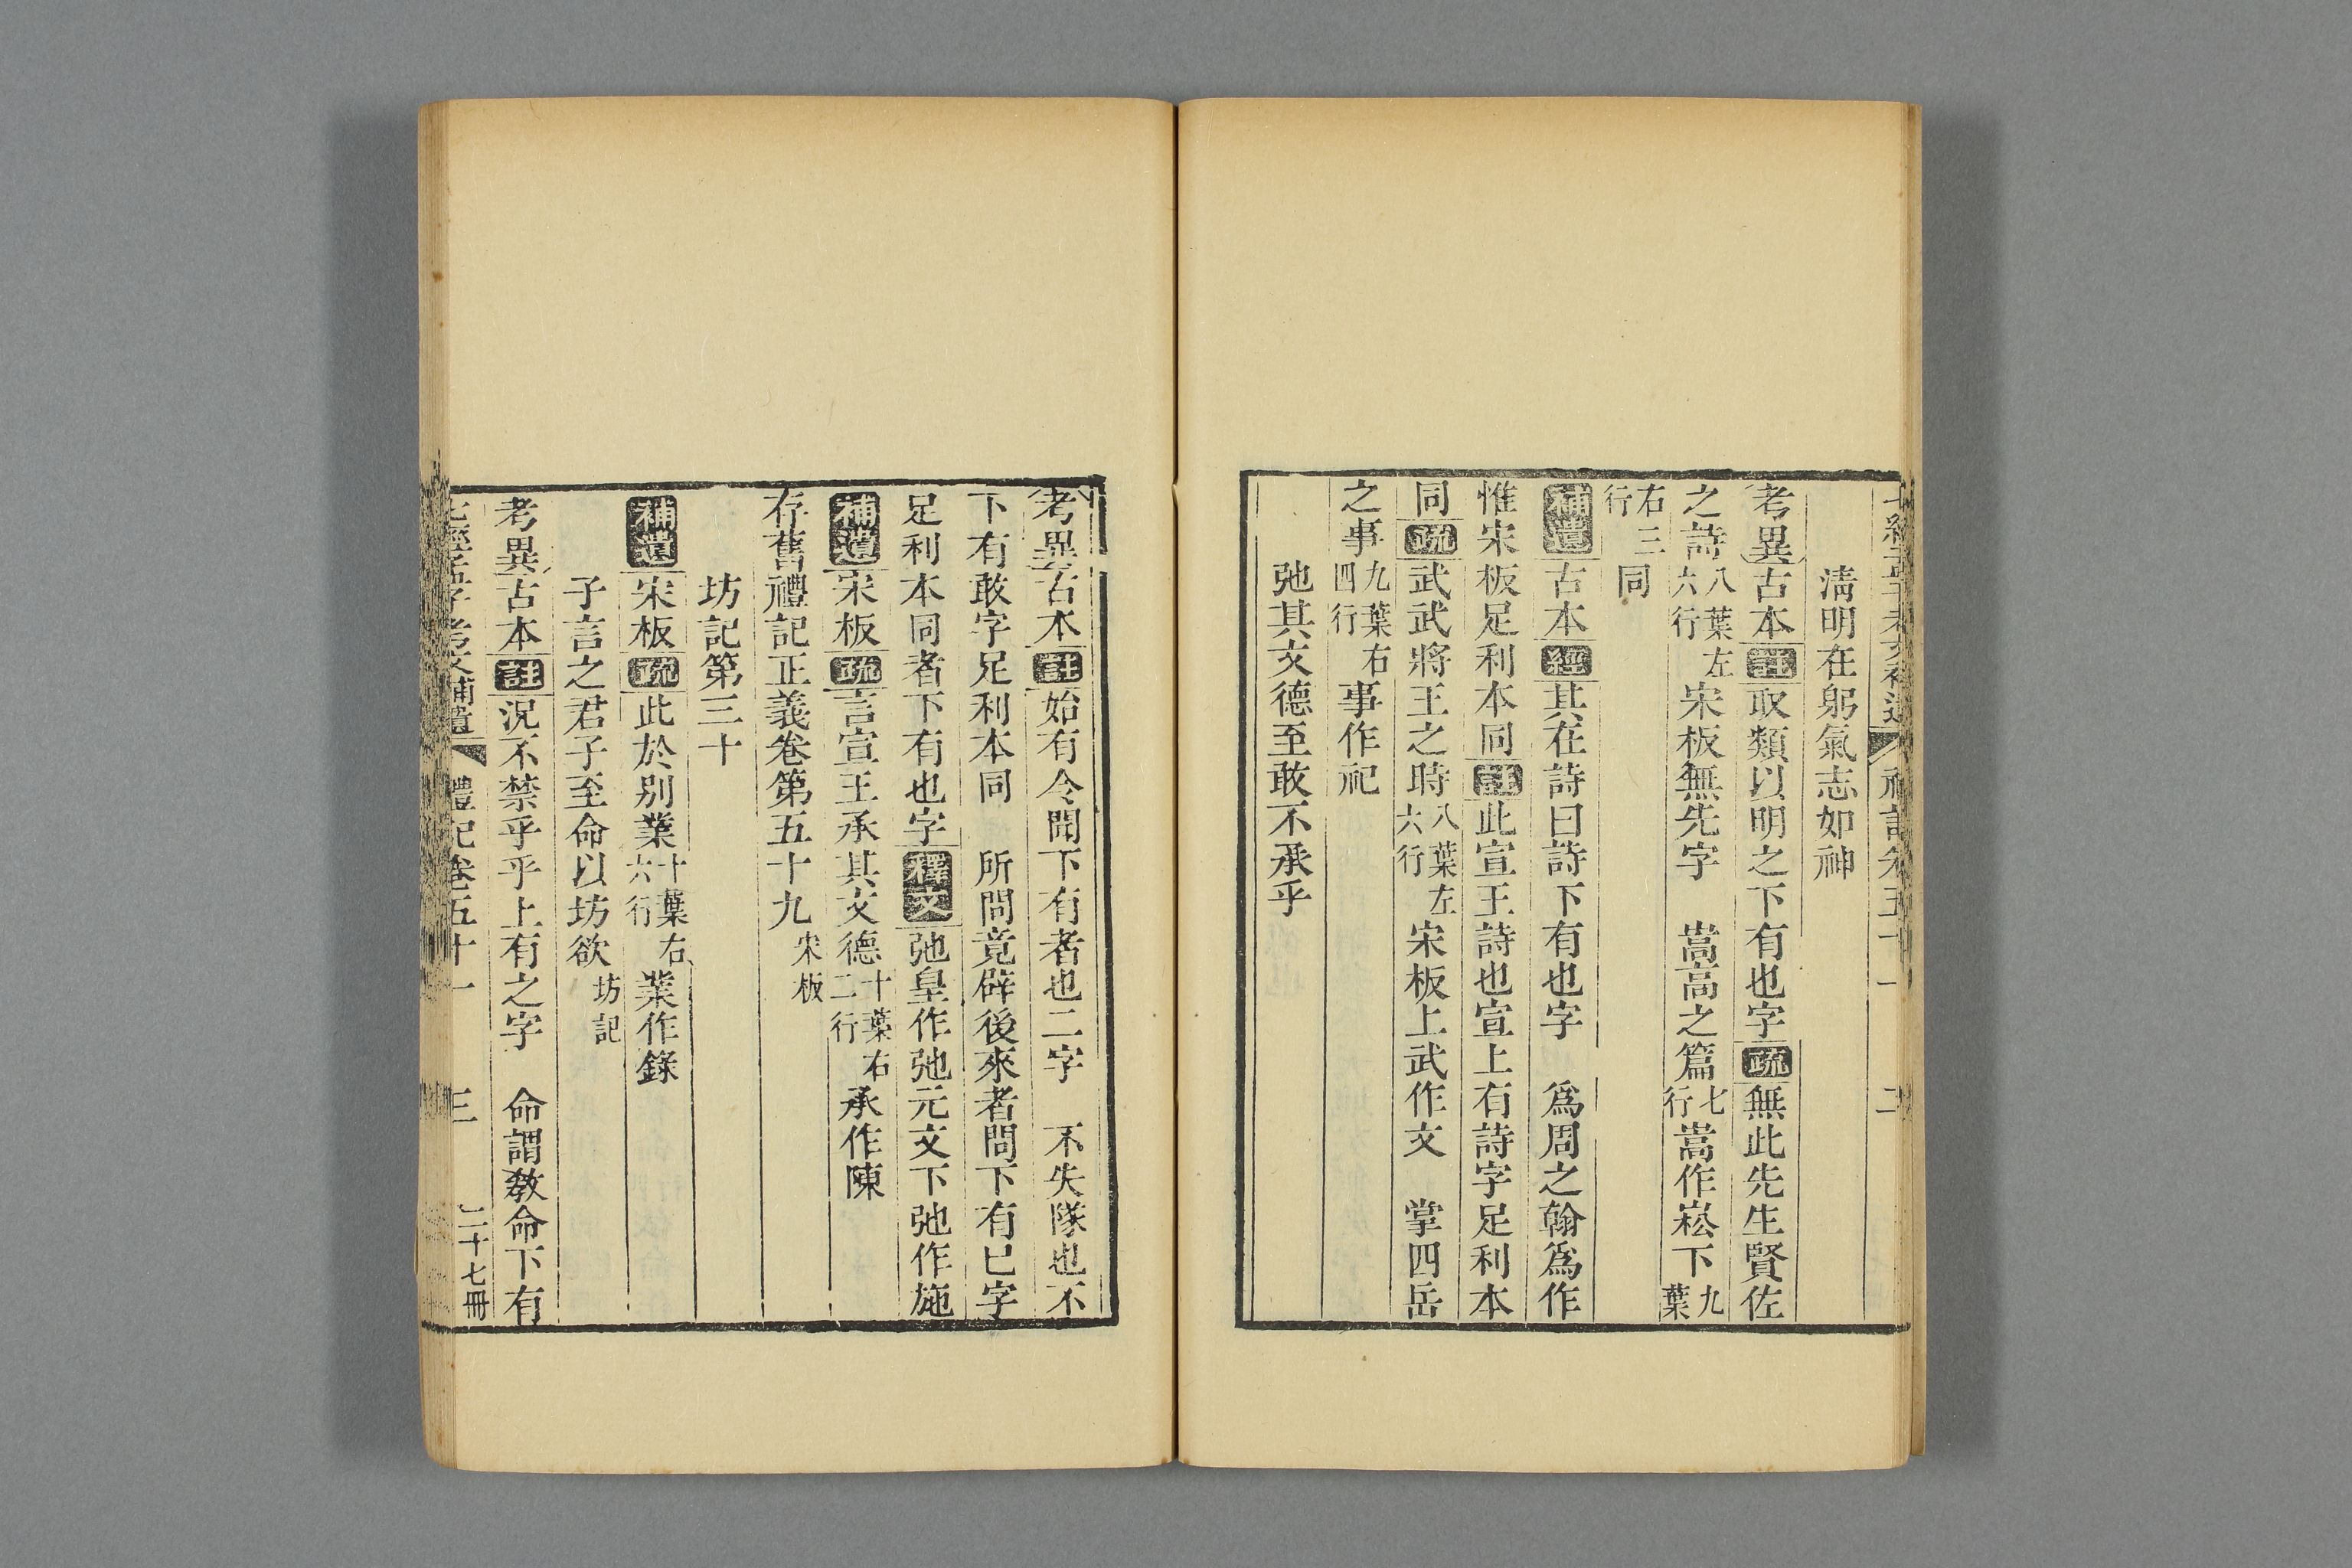 淸明在躬氣志如神
考異古本註取類以明之下有也字疏無此先生賢佐
之詩八葉左六行宋板無先字　嵩高之篇七行嵩作崧下九葉
右三行同
補遺古本經其在詩曰詩下有也字　爲周之翰爲作
惟宋板足利本同註此宣王詩也宣上有詩字足利本
同疏武武將王之時八葉左六行宋板上武作文　掌四岳
之事九葉右四行事作祀
弛其文德至敢不承乎
考異古本註始有令聞下有者也二字　不失隊也不
下有敢字足利本同　所問竟辟後來者問下有已字
足利本同者下有也字釋文弛皇作弛元文下弛作施
補遺宋板疏言宣王承其文德十葉右二行承作陳
存舊禮記正義卷第五十九宋板
坊記第三十
補遺宋板疏此於别葉十葉右六行葉作錄
子言之君子至命以坊欲坊記
考異古本註況不禁乎乎上有之字　命謂教命下有
七經孟子考文補遺　禮記卷五十一　三　二十七冊